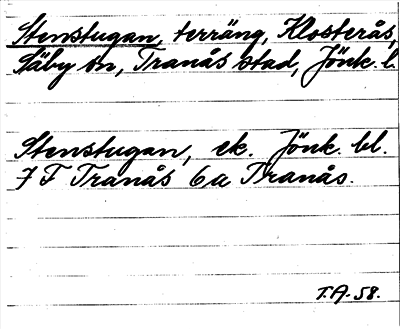 Stenstugan, terräng, Klosterås,
Säby sn, Tranås stad, Jönk. l.
Stenstugan, ek. Jönk. bl.
7 F Tranås 6a Tranås.
T.A. 58.